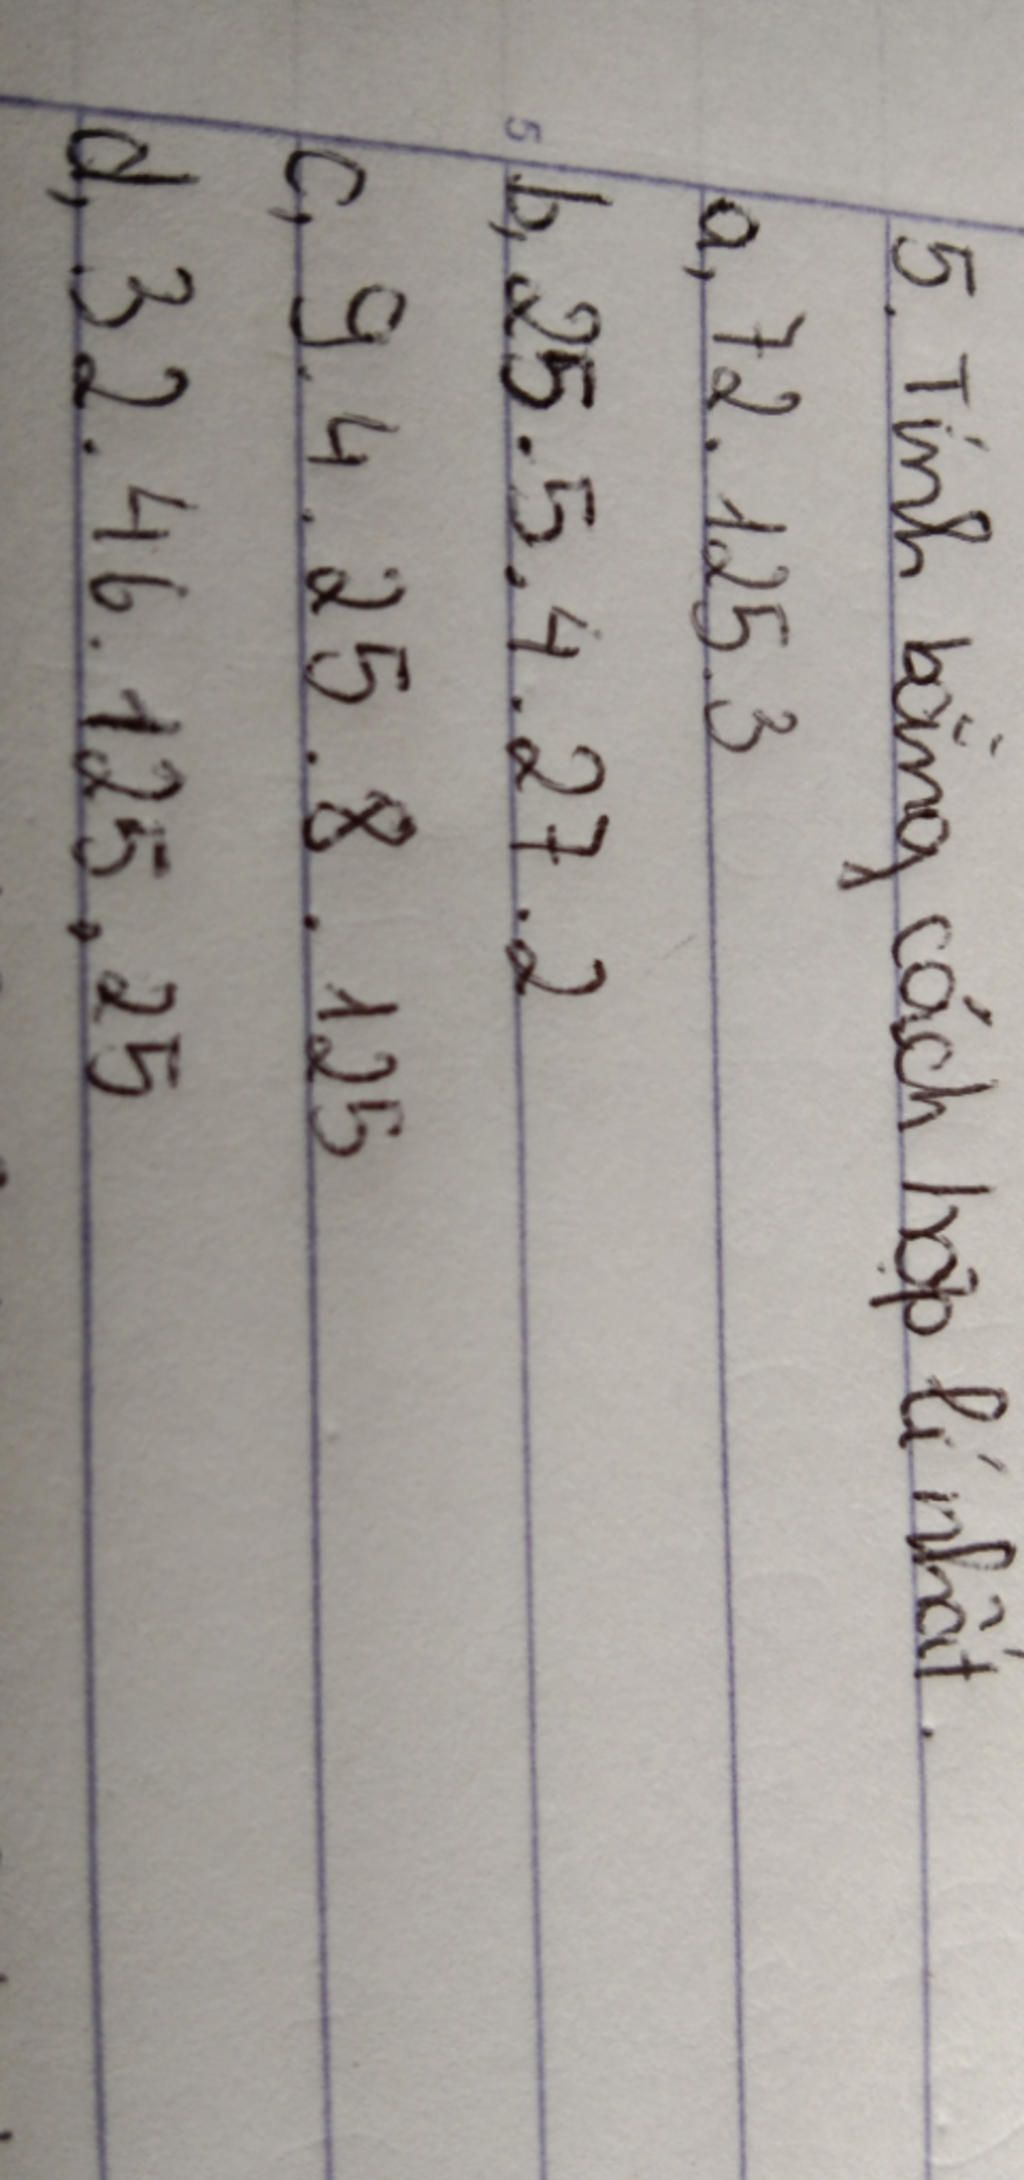 5. Tính bằng cách hợp lí nhất.
a, 72.125.3
b, 25.5.4.27.2
c, 9.4.25.8.125
d, 32.46.125.25